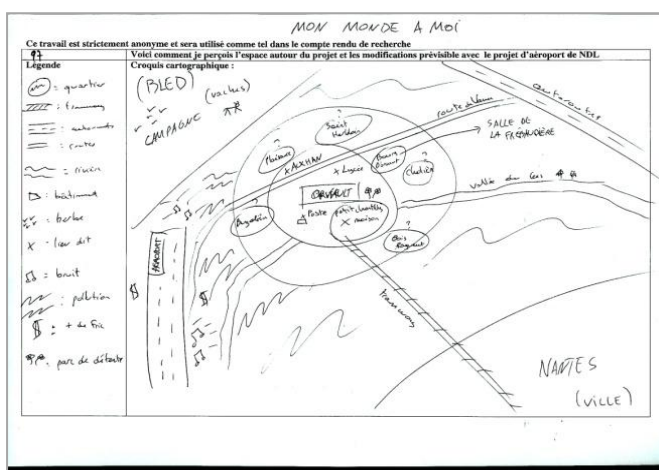 MON MONDE A MOI
Ce travail est strictement anonyme et sera utilisé comme tel dans le compte rendu de recherche
97
Voici comment je perçois l'espace autour du projet et les modifications prévisible avec le projet d'aéroport de NDL
Légende
: quartier
: tramway
: autoroute
: routes
: rivière
: bâtiment
: herbe
X : lieu dit
: bruit
: pollution
$ : + de fric
: parc de détente
Croquis cartographique :
(BLED)
(vaches)
CAMPAGNE
?
Saint Herblain
route de Vannes
autoroute
SALLE DE
LA FRÉBAUDIÈRE
?
Plaisance
X AUCHAN
X Lycée
?
Bourg
?
vallée du Cens
ORVAULT
Poste
petit chantilly
X maison
?
Bugallière
?
Bois Raguenet
AÉROPORT
$
$
tramway
NANTES
(VILLE)